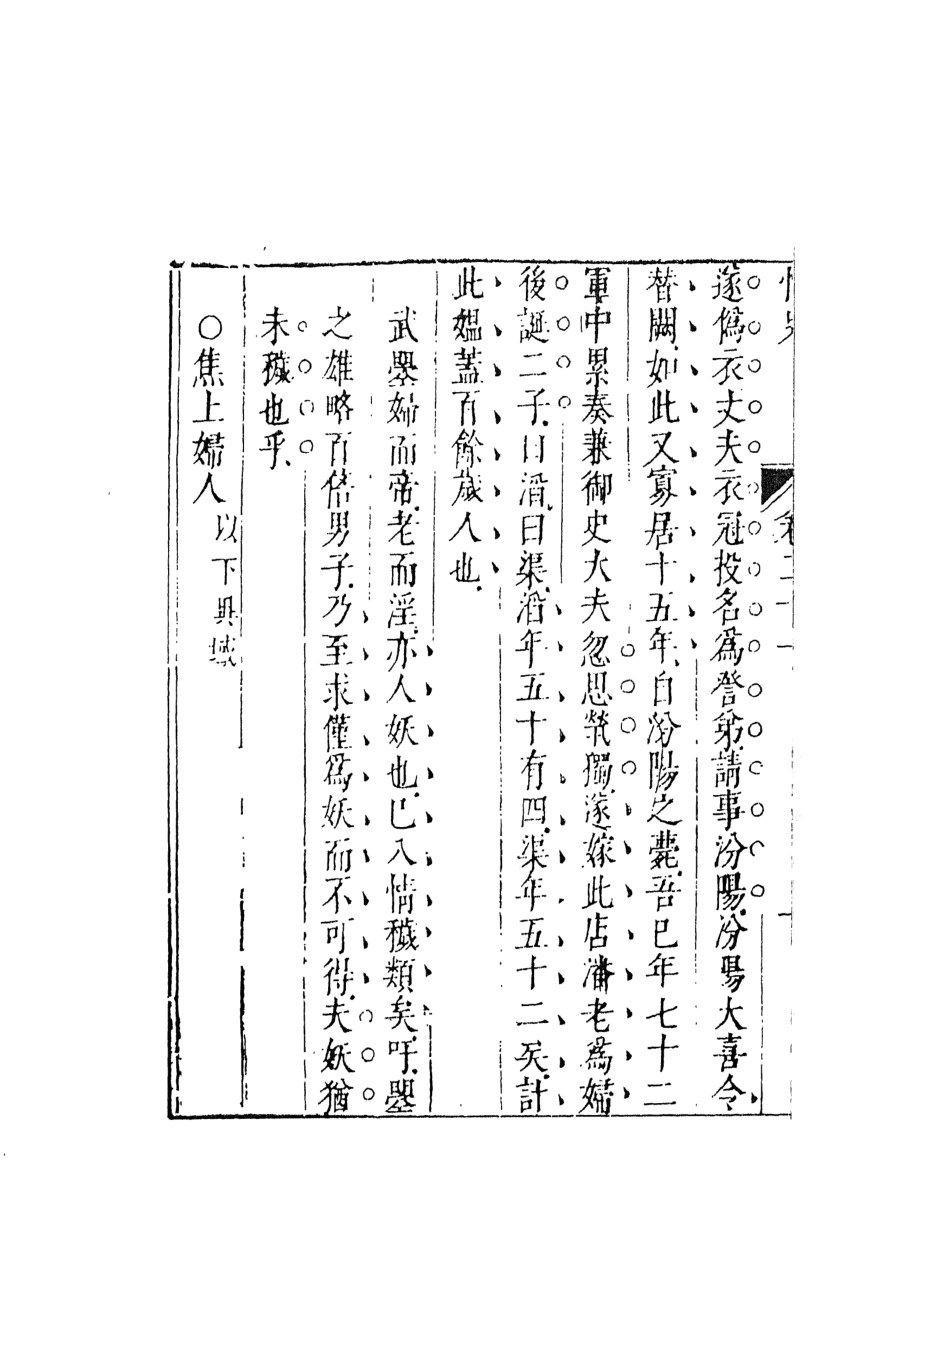 情史 卷二十一
遂僞衣丈夫衣冠投名爲誉弟請事汾陽汾陽大喜令
替闕如此又寡居十五年自汾陽之薨吾已年七十二
軍中累奏兼御史大夫忽思煢獨遂嫁此店潘老爲婦
後誕二子曰滔曰渠滔年五十有四渠年五十二矣計
此媼蓋百餘歲人也
武曌婦而帝老而淫亦人妖也已入情穢類矣吁曌
之雄略百倍男子乃至求僅爲妖而不可得夫妖猶
未穢也乎
○焦上婦人 以下異域